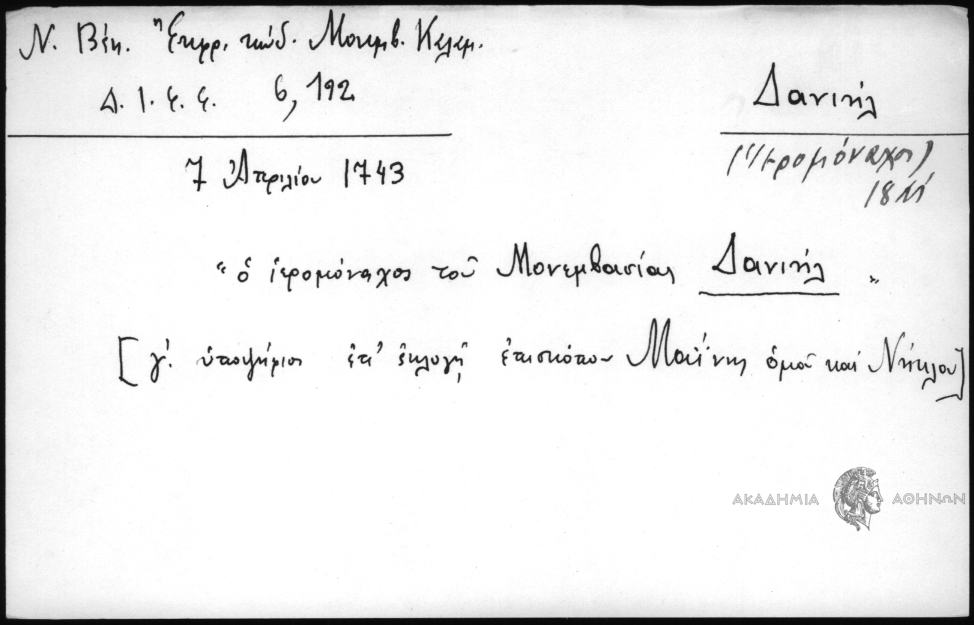 Ν. Βέη. Ἔκφρ. κώδ. Μονεμβ. Κελεμ.
Δ. Ι. Ε. Ε. 6, 192
Δανιήλ
(ἱερομόναχος)
18
7 Ἀπριλίου 1743
" ὁ ἱερομόναχος τοῦ Μονεμβασίας Δανιήλ "
[ γ'. ὑποψήφιος ἐπ' ἐκλογῇ ἐπισκόπου Μαΐνης ὁμοῦ καὶ Νήκλου ]
ΑΚΑΔΗΜΙΑ ΑΘΗΝΩΝ